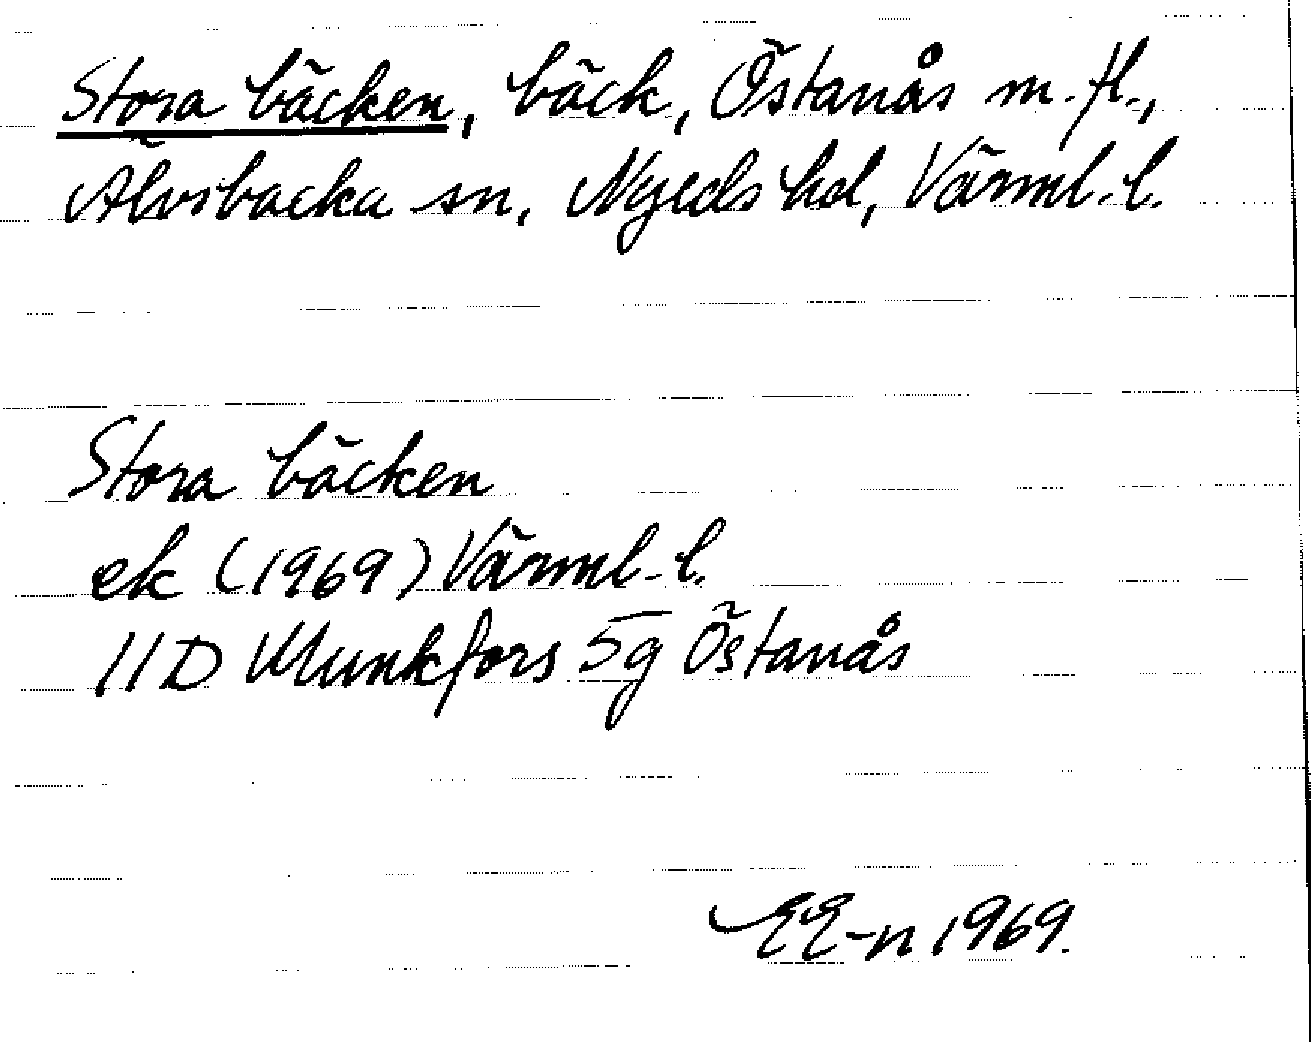 Stora bäcken, bäck, Östanås m. fl.,
Älvsbacka sn, Nyeds hd, Värml. l.
Stora bäcken
ek (1969) Värml. l.
11D Munkfors 5g Östanås
EE-n 1969.